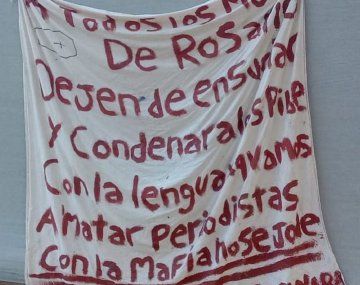 A Todos los
De Rosario
Dejen de ensuciar
y Condenar a los Pibe
Con la lengua, vamos
A matar periodistas
Con la Mafia no se Jode